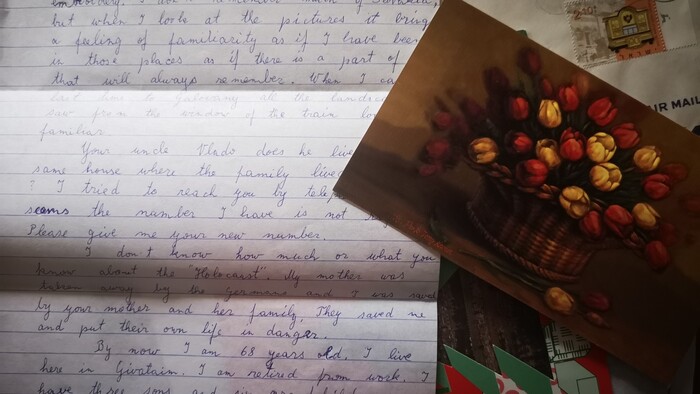 embroidery. I don't remember much of Slovakia,
but when I look at the pictures it bring
a feeling of familiarity as if I have been
in those places as if there is a part of
that will always remember. When I ca
last hour to Galovany all the landsca
saw from the window of the train lo
familiar.
Your uncle Vlado does he live
same house where the family live
? I tried to reach you by tele
seems the number I have is not
Please give me your new number.
I don't know how much or what you
know about the "Holocaust". My mother was
taken away by the Germans and I was saved
by your mother and her family. They saved me
and put their own life in danger.
By now I am 68 years old, I live
here in Givataim. I am retired from work. I
have three sons and
AIR MAIL